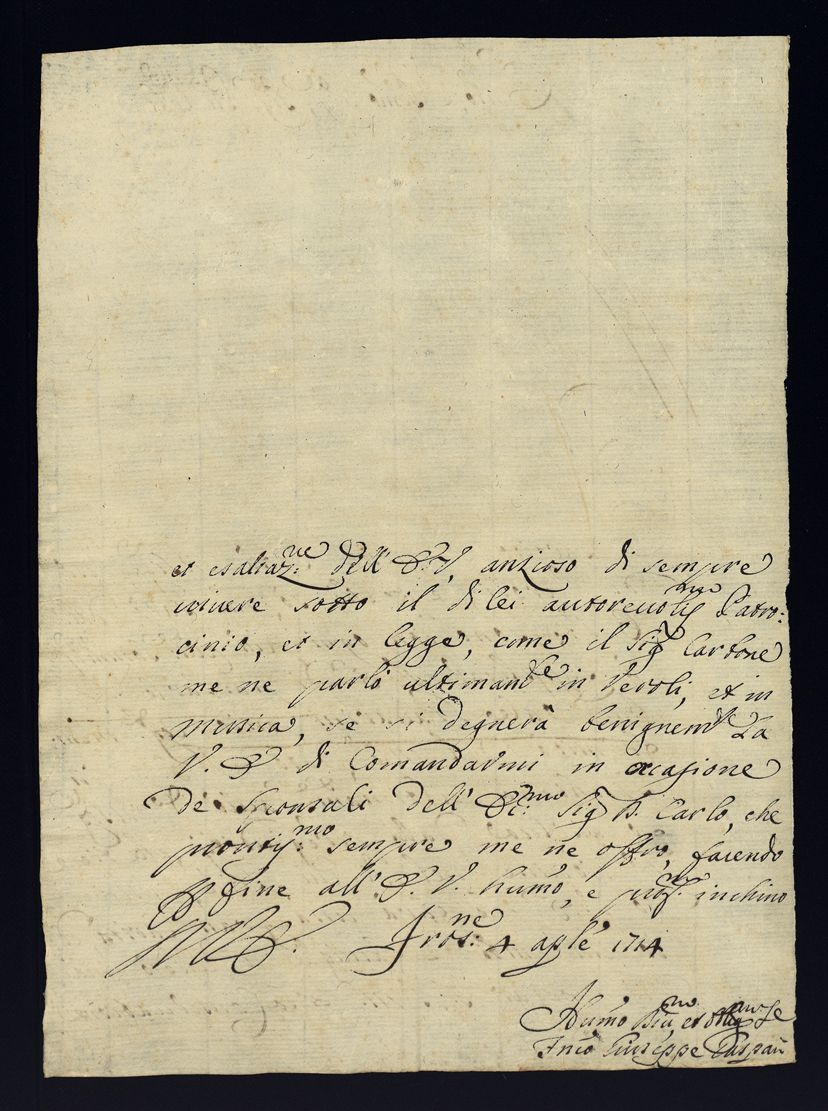 et esaltaz:ne dell' E. V, anzioso di sempre
vivere sotto il di lei autorevoliss:mo Patro:
cinio, et in legge, come il Sig.r Carbone
me ne parlò ultimam:te in Veroli, et in
musica, se si degnerà benignem:te La
V. E. di Comandarmi in occasione
de sponsali dell' Ec:mo Sig.r D. Carlo, che
prontiss:mo sempre me ne offro, facendo
fine all' E. V. humo, e prof.mo inchino
Fros:ne 4 aple 1714
Humo Div:mo, et obblig:mo Se
Giuseppe Gaspari